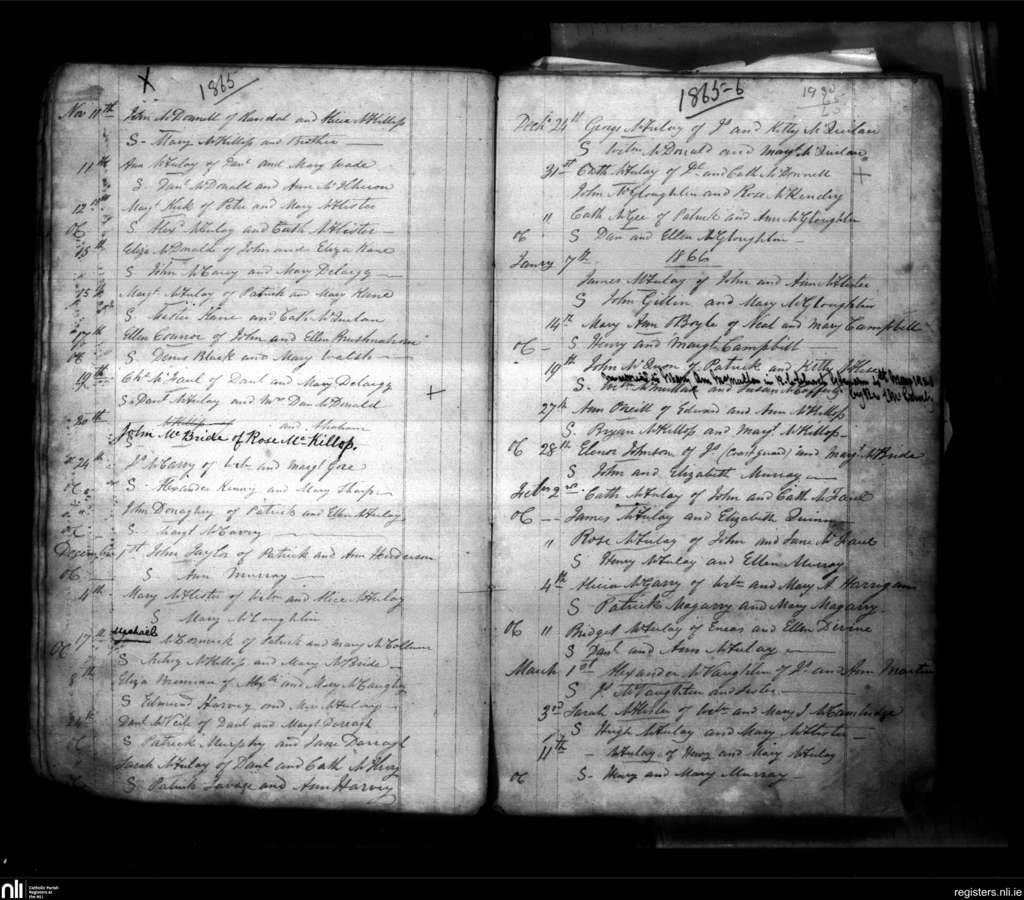 X 1865
Nov 11th John McDonnell of Randal and Alice McKillop
S - Mary McKillop and Brother
11th Ann McAulay of Danl and Mary Wade
S. Danl McDonald and Ann
12 Margt Kirk of Peter and Mary McAlister
06 S Alexr McAulay and Cath McAlister
15th Eliza McDonald of John and Eliza Kane
S John McCarry and Mary Delargy
15th Margt McAulay of Patrick and Mary Kane
S. Kane and Cath McQuilan
17th Ellen Connor of John and Ellen
06 S Denis Black and Mary Walsh
19th Chs McFaul of Danl and Mary Delargy
S - Danl McAulay and Mrs Dan McDonald
20th McKillop and Abraham
John McBride of Rose McKillop.
24th Js McCarry of Wm and Margt Gore
06 S. Alexander Kinny and Mary Sharp
John Donaghy of Patrick and Ellen McAulay
06 S Margt McCarry
December 1st John Taylor of Patrick and Ann Henderson
06 S Ann Murray
4th Mary McAlister of Wm and Alice McAulay
S Mary McLoughlin
06 17th Michael McCormick of Patrick and Mary McCollum
S McKillop and Mary McBride
8th Eliza Brennan of and Mary McCaughey
S Edmund Harvey and McAulay
24th Danl McNeile of Danl and Margt Darragh
06 S Patrick Murphy and Jane Darragh
Sarah McAulay of Danl and Cath McHenry
S Patrick Savage and Ann Harvey
1865-6
Decbr 24th George McAulay of Js and Kitty McQuilan
S Wm McDonald and Margt McQuilan
31st Cath McAulay of Js and Cath McDonnell
John McGloughlin and Rose McKendry
" Cath McGee of Patrick and Ann McGloughlin
06 S Dan and Ellen McGloughlin
Janry 7th 1866
James McAulay of John and Ann McAlister
S John Gillin and Mary McGloughlin
14th Mary Ann O'Boyle of Neal and Mary Campbell
06 S Henry and Margt Campbell
19th John of Patrick and Kitty
married to Mary Ann McMullan in
S. McMullan and Susan
27th Ann O'Neill of Edward and Ann McKillop
S. Bryan McKillop and Margt McKillop
06 28th Elenor Johnson of Js (Coastguard) and Margt McBride
S John and Elizabeth Murray
Febry 2nd Cath McAulay of John and Cath McFaul
06 James McAulay and Elizabeth Quinn
" Rose McAulay of John and Jane McFaul
S Henry McAulay and Ellen Murray
4th Alicia McGarry of Wm and Mary A Harrigan
S Patrick Magarry and Mary Magarry
06 " Bridget McAulay of Eneas and Ellen Devine
S Danl and Ann McAulay
March 1st Alexander McNaughten of Js and Ann Martin
S Js McNaughten and Sister
3rd Sarah McAlister of Wm and Mary J McCambridge
S Hugh McAulay and Mary McAlister
11th - McAulay of Henry and Mary McAulay
06 S. Henry and Mary Murray
nli Catholic Parish
Registers at
the NLI
registers.nli.ie